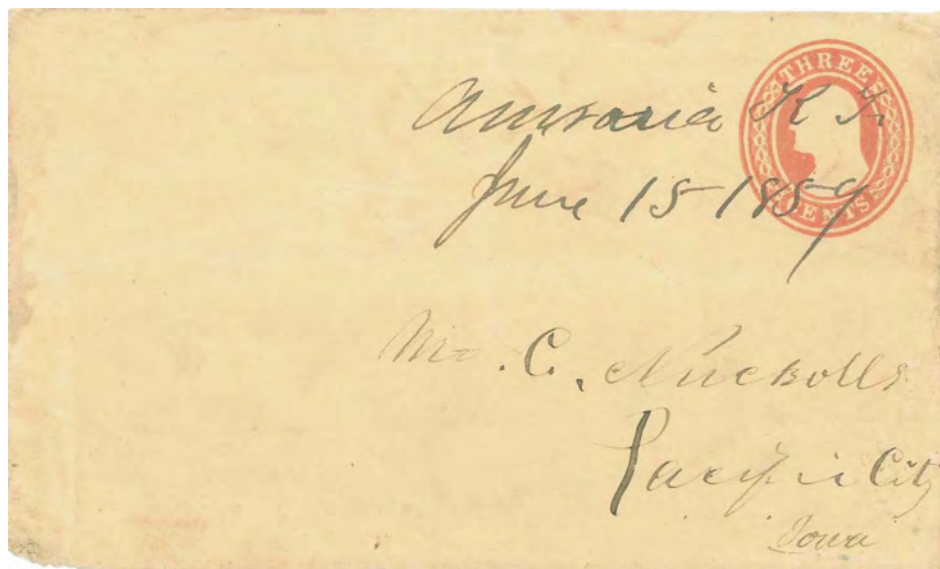 THREE
CENTS
Auraria K T.
June 15 1859
Mr. C. Nuckolls
Pacific City
Iowa